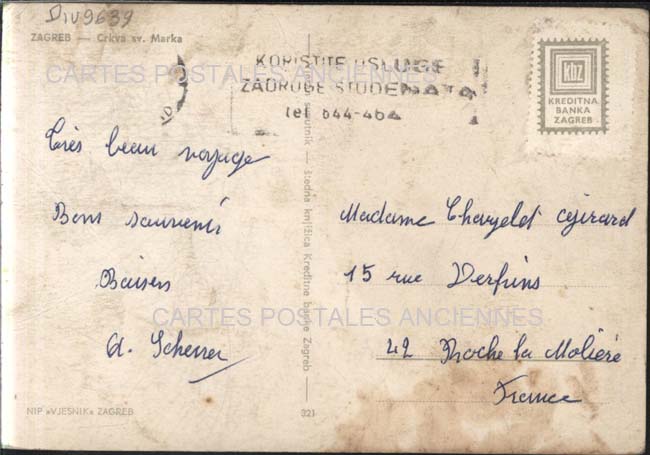 DIV9639
ZAGREB — Crkva sv. Marka
KORISTITE USLUGE
ZADRUGE STUDENATA
tel 644-464
KBZ
KREDITNA
BANKA
ZAGREB
CARTES POSTALES ANCIENNES
Très beau voyage
Bons souvenirs
Baisers
A. Scherrer
Madame
15 rue
42 Roche la Molière
France
CARTES POSTALES ANCIENNES
štedna knjižica Kreditne banke Zagreb
NIP »VJESNIK« ZAGREB
321